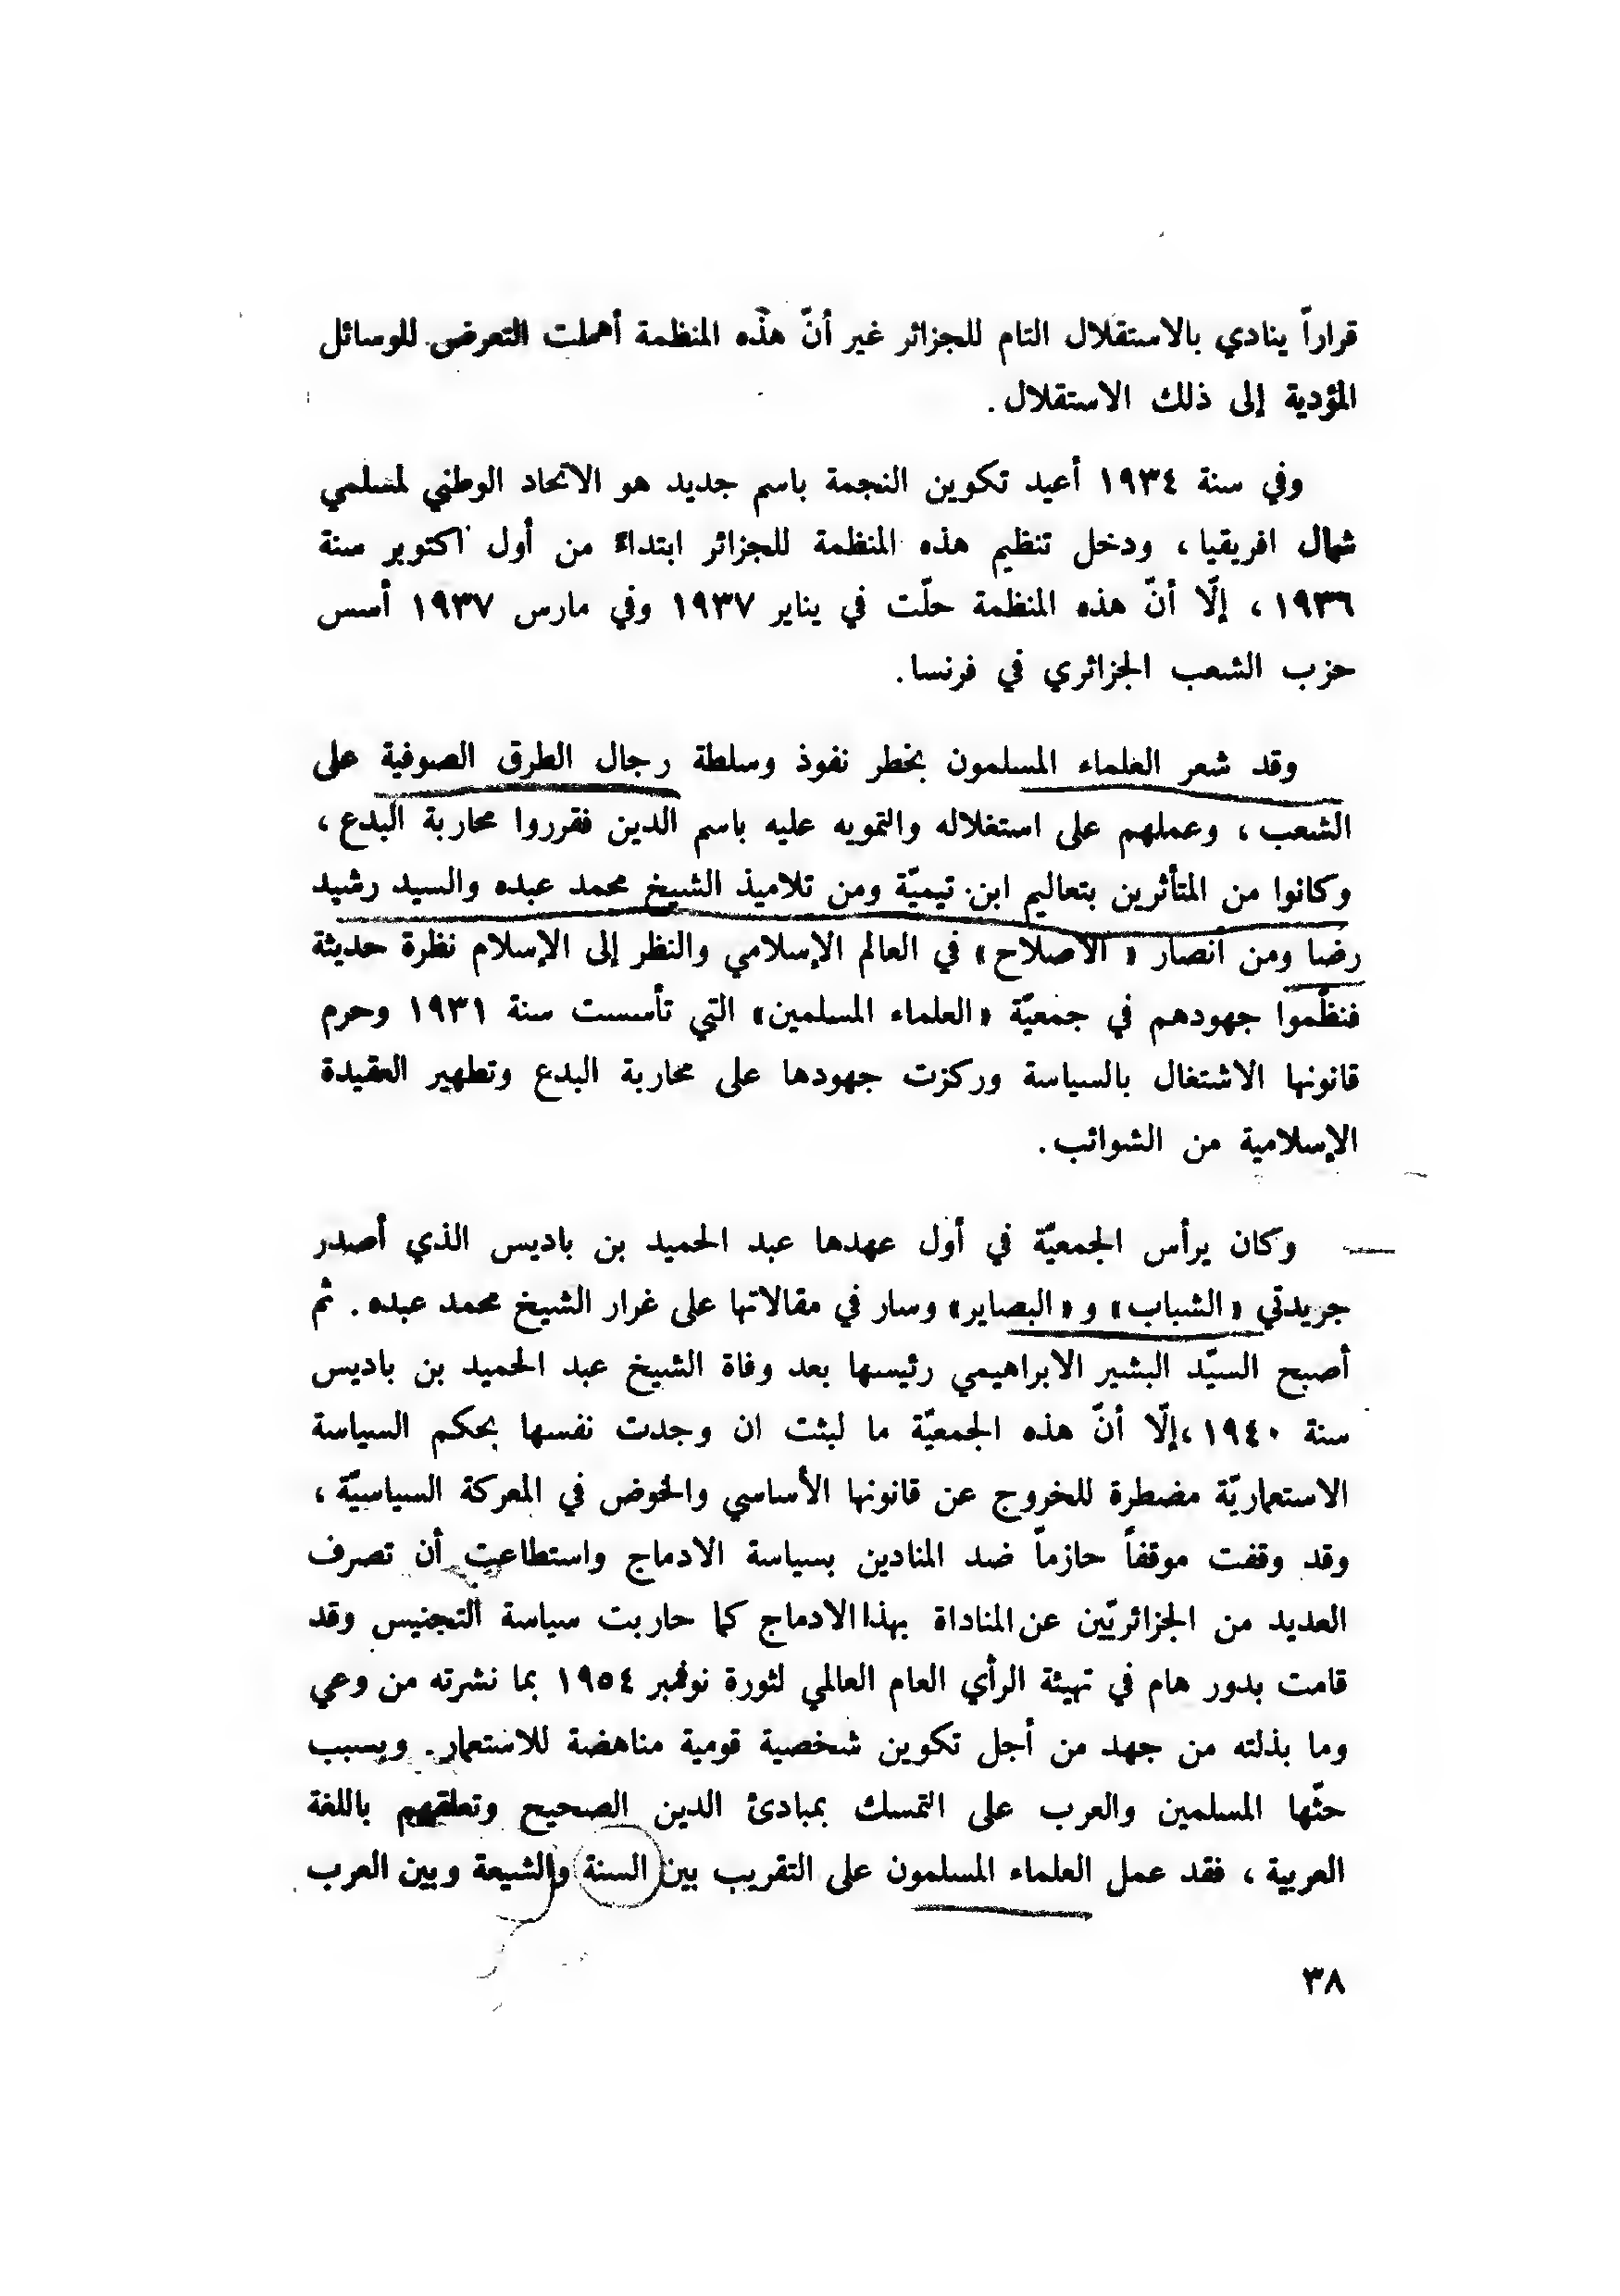 قراراً ينادي بالاستقلال التام للجزائر غير أنّ هذه المنظمة أهملت التعرض للوسائل
المؤدية إلى ذلك الاستقلال.
وفي سنة ١٩٣٤ أعيد تكوين النجمة باسم جديد هو الاتحاد الوطني لمسلمي
شمال افريقيا، ودخل تنظيم هذه المنظمة للجزائر ابتداءً من أول اكتوبر سنة
١٩٣٦، إلّا أنّ هذه المنظمة حلّت في يناير ١٩٣٧ وفي مارس ١٩٣٧ أسس
حزب الشعب الجزائري في فرنسا.
وقد شعر العلماء المسلمون بخطر نفوذ وسلطة رجال الطرق الصوفية على
الشعب، وعملهم على استغلاله والتمويه عليه باسم الدين فقرروا محاربة البدع،
وكانوا من المتأثرين بتعاليم ابن تيميّة ومن تلاميذ الشيخ محمد عبده والسيد رشيد
رضا ومن أنصار « الاصلاح » في العالم الإسلامي والنظر إلى الإسلام نظرة حديثة
فنظّموا جهودهم في جمعيّة «العلماء المسلمين» التي تأسست سنة ١٩٣١ وحرم
قانونها الاشتغال بالسياسة وركزت جهودها على محاربة البدع وتطهير العقيدة
الإسلامية من الشوائب.
وكان يرأس الجمعيّة في أول عهدها عبد الحميد بن باديس الذي أصدر
جريدتي «الشباب» و«البصاير» وسار في مقالاتها على غرار الشيخ محمد عبده. ثم
أصبح السيّد البشير الابراهيمي رئيسها بعد وفاة الشيخ عبد الحميد بن باديس
سنة ١٩٤٠،إلّا أنّ هذه الجمعيّة ما لبثت ان وجدت نفسها بحكم السياسة
الاستعماريّة مضطرة للخروج عن قانونها الأساسي والخوض في المعركة السياسيّة،
وقد وقفت موقفاً حازماً ضد المنادين بسياسة الادماج واستطاعت أن تصرف
العديد من الجزائريّين عن المناداة بهذا الادماج كما حاربت سياسة التجنيس وقد
قامت بدور هام في تهيئة الرأي العام العالمي لثورة نوفمبر ١٩٥٤ بما نشرته من وعي
وما بذلته من جهد من أجل تكوين شخصية قومية مناهضة للاستعمار. وبسبب
حثّها المسلمين والعرب على التمسك بمبادئ الدين الصحيح وتعلقهم باللغة
العربية، فقد عمل العلماء المسلمون على التقريب بين السنة والشيعة وبين العرب
٣٨